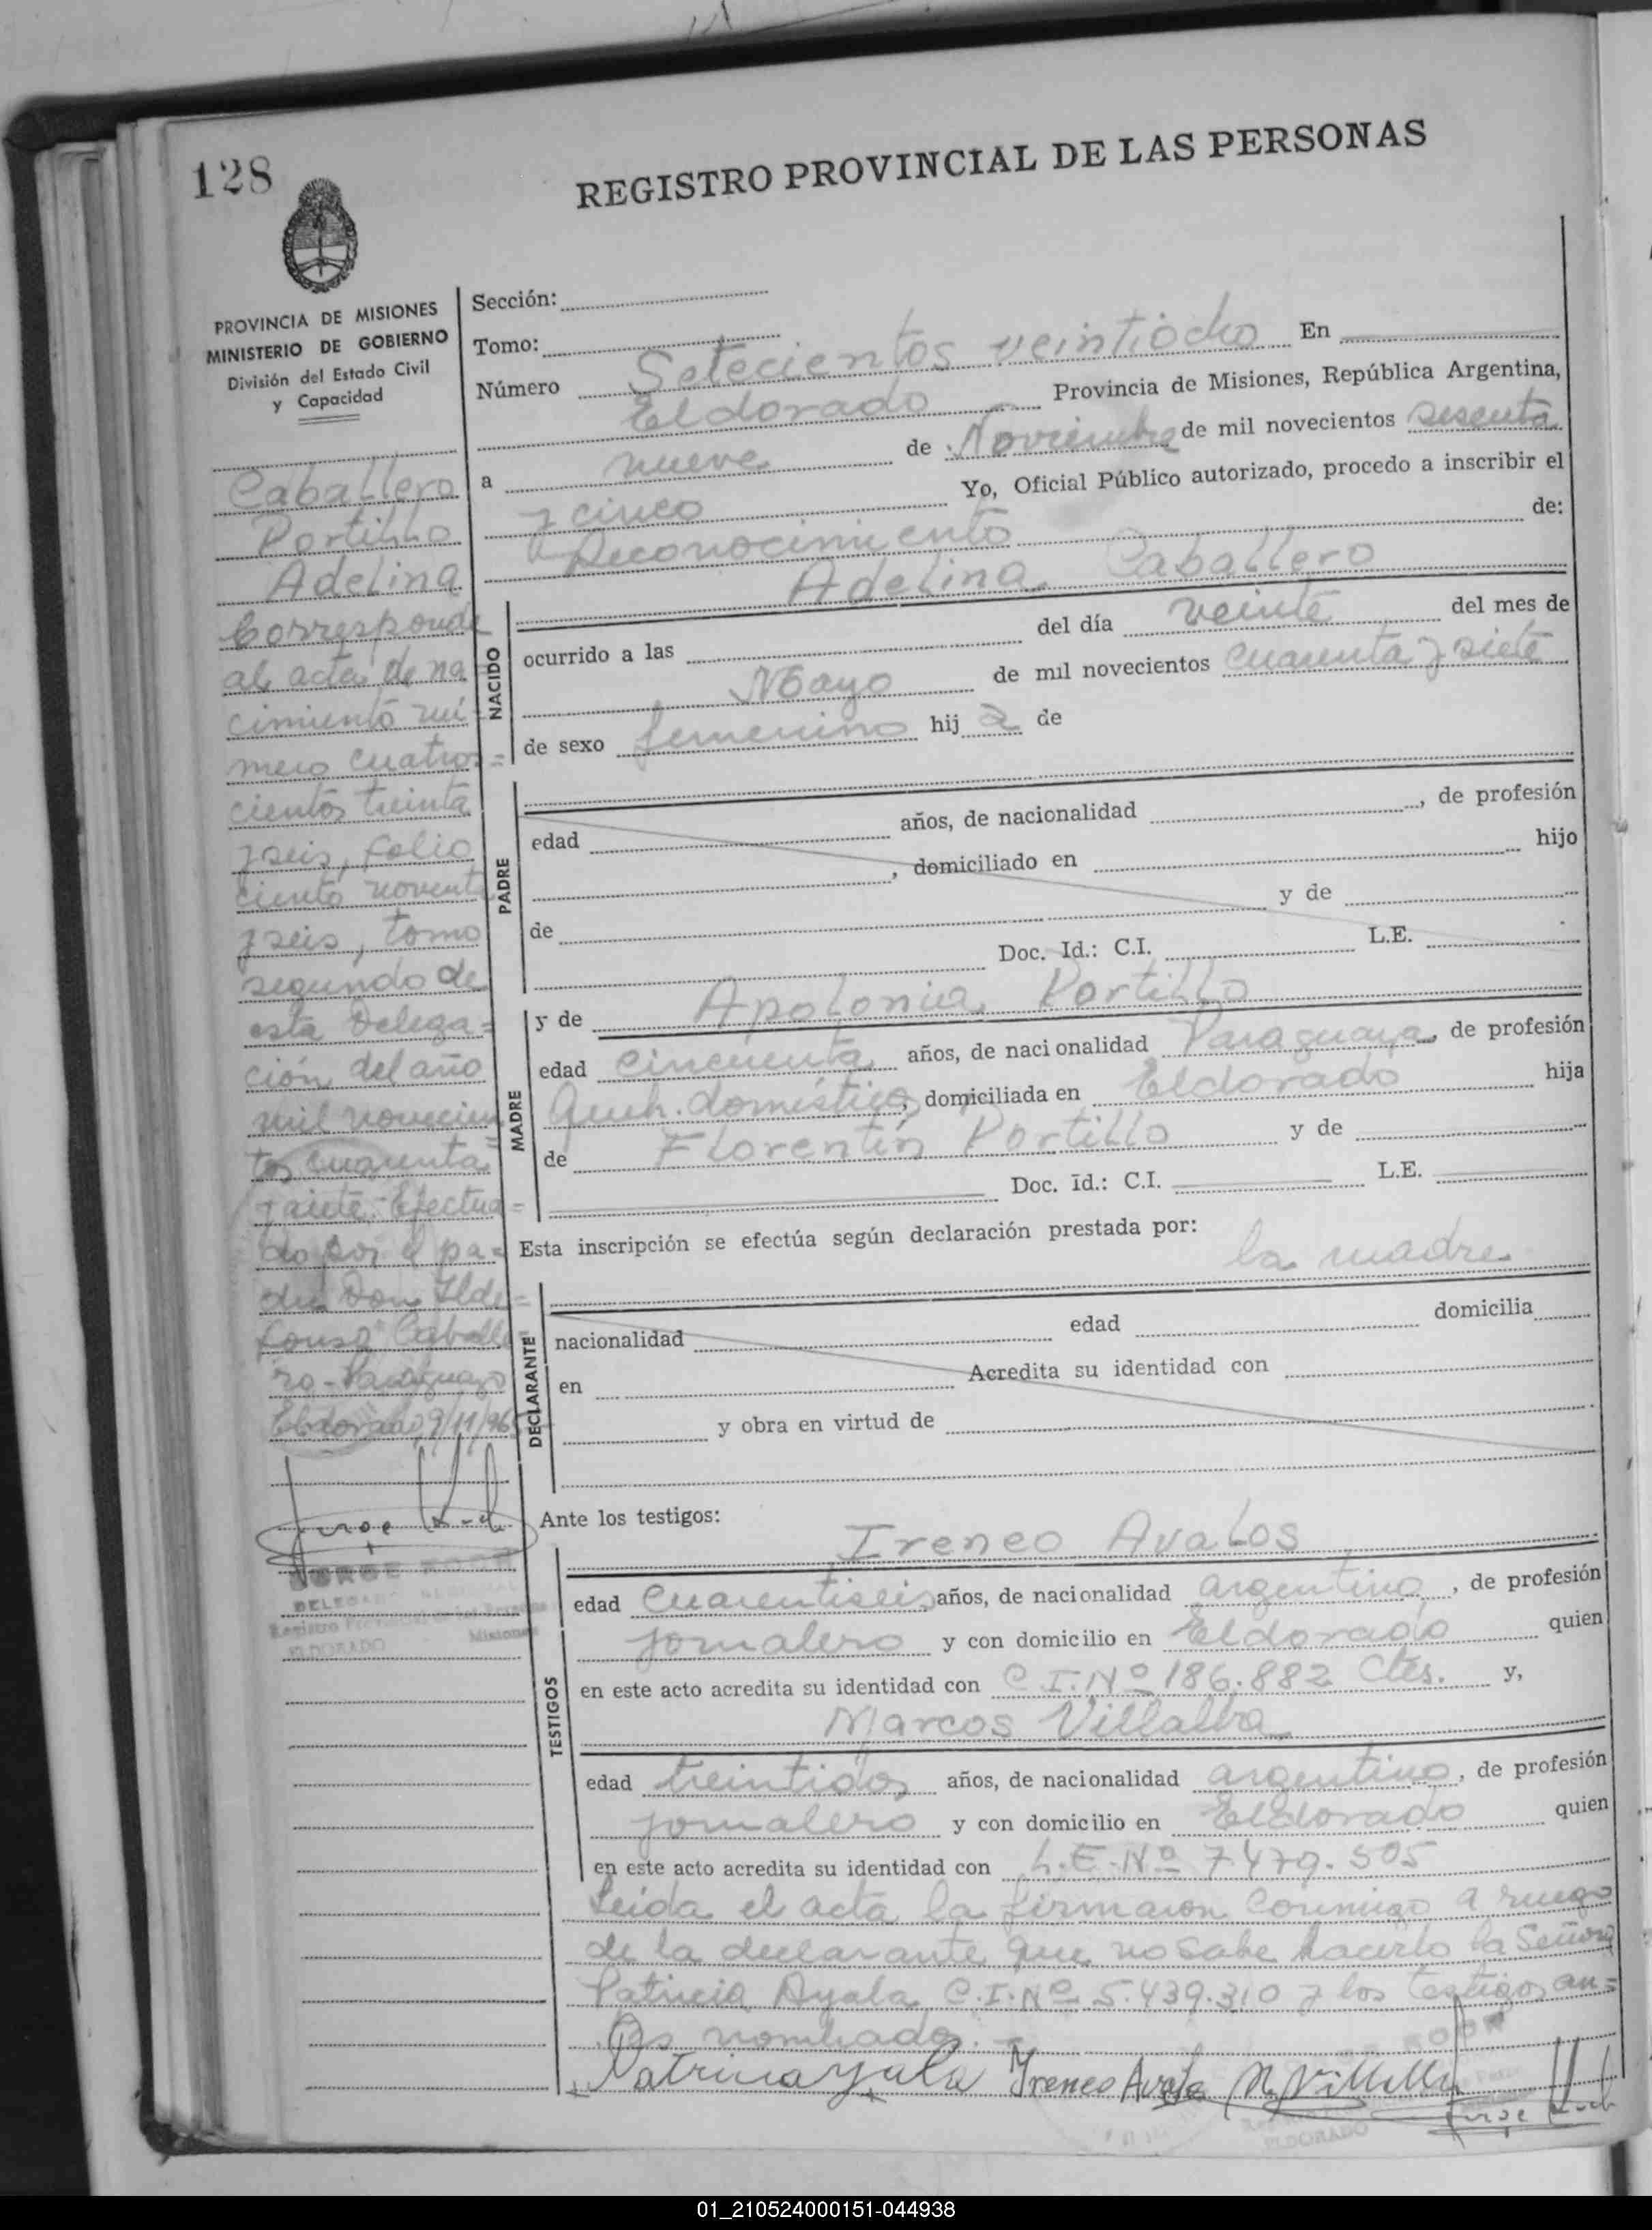 128
REGISTRO PROVINCIAL DE LAS PERSONAS
PROVINCIA DE MISIONES
MINISTERIO DE GOBIERNO
División del Estado Civil
y Capacidad
Caballero
Portillo
Adelina
Corresponde
al acta de na
cimiento nú
mero cuatro=
cientos treinta
y seis, folio
ciento novent
y seis, tomo
segundo de
esta Delega=
ción del año
mil novecien
tos cuarenta
y siete. Efectua=
do por el pa=
dre Don Ilde=
fonso Caballe
ro - Paraguayo
Eldorado, 9/11/965
JORGE KOCH
DELEGADO REGIONAL
Registro Provincial de las Personas
ELDORADO Misiones
Sección:
Tomo:
Número Setecientos veintiocho En
Eldorado Provincia de Misiones, República Argentina,
a nueve de Noviembre de mil novecientos sesenta
y cinco Yo, Oficial Público autorizado, procedo a inscribir el
Reconocimiento de:
Adelina Caballero
NACIDO
ocurrido a las del día veinte del mes de
Mayo de mil novecientos cuarenta y siete
de sexo femenino hij a de
PADRE
edad años, de nacionalidad , de profesión
, domiciliado en hijo
de y de
Doc. Id.: C.I. L.E.
MADRE
y de Apolonia Portillo
edad cincuenta años, de nacionalidad Paraguaya, de profesión
Queh. domésticos, domiciliada en Eldorado hija
de Florentín Portillo y de
Doc. Id.: C.I. L.E.
Esta inscripción se efectúa según declaración prestada por:
la madre
DECLARANTE
nacionalidad edad domicilia
en Acredita su identidad con
y obra en virtud de
Ante los testigos:
Ireneo Avalos
TESTIGOS
edad cuarentiseis años, de nacionalidad argentino, de profesión
jornalero y con domicilio en Eldorado quien
en este acto acredita su identidad con C.I.Nº 186.882 Ctes. y,
Marcos Villalba
edad treintidos años, de nacionalidad argentino, de profesión
jornalero y con domicilio en Eldorado quien
en este acto acredita su identidad con L.E.Nº 7479.505
Leída el acta la firmaron conmigo a ruego
de la declarante que no sabe hacerlo la Señora
Patricia Ayala C.I.Nº 5.439.310 y los testigos an=
tes nombrados. -
Patricia Ayala Ireneo Avalo M. Villalba
ELDORADO
01_210524000151-044938